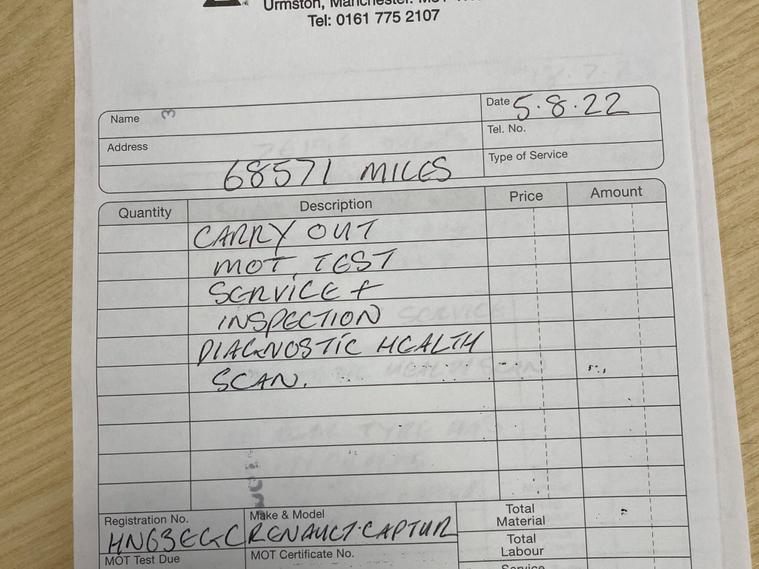 Urmston, Manchester.
Tel: 0161 775 2107
Name
Date 5.8.22
Address
Tel. No.
68571 MILES
Type of Service
Quantity Description Price Amount
CARRY OUT
MOT TEST
SERVICE +
INSPECTION
DIAGNOSTIC HEALTH
SCAN.
Registration No. Make & Model Total Material
HN63EGC RENAULT.CAPTUR
MOT Test Due MOT Certificate No. Total Labour